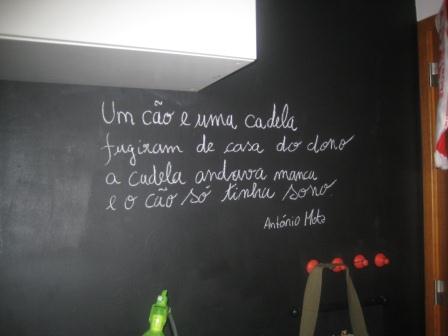 Um cão e uma cadela
fugiram de casa do dono
a cadela andava manca
e o cão só tinha sono.
António Mota